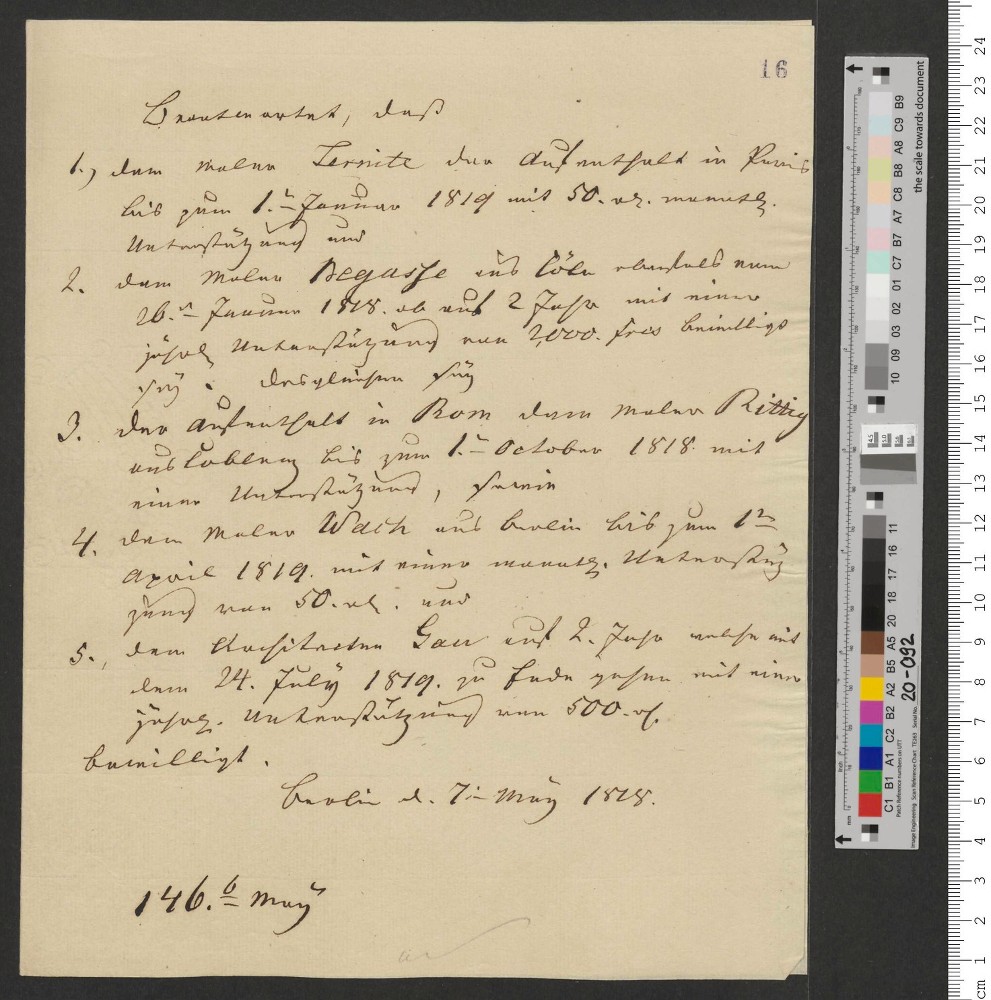 16
Beantwortet, daß
1., dem Maler Ternite der Aufenthalt in Paris
bis zum 1.t Januar 1819 mit 50. rt. monatl.
Unterstützung und
2. dem Maler Begasse aus Cöln ebenfals vom
26.t Januar 1818. ab auf 2 Jahr mit einer
jährl Unterstützung von 2,000. frcs bewilligt
sey. desgleichen sey
3. der Aufenthalt in Rom dem Maler Rittig
aus Coblenz bis zum 1.t October 1818. mit
einer Unterstützung, sowie
4. dem Maler Wach aus Berlin bis zum 1tn
April 1819. mit einer monatl. Unterstütz
zung von 50. rt. und
5., dem Architecten Gau auf 2. Jahr welche mit
dem 24. July 1819. zu Ende gehen mit einer
jährl. Unterstützung von 500. rt.
bewilligt.
Berlin d. 7t May 1818.
146. b May
the scale towards document
C1 B1 A1 C2 B2 A2 B5 A5 20 18 17 16 11
10 09 03 02 01 C7 B7 A7 C8 B8 A8 C9 B9
20-092
cm 1 2 3 4 5 6 7 8 9 10 11 12 13 14 15 16 17 18 19 20 21 22 23 24